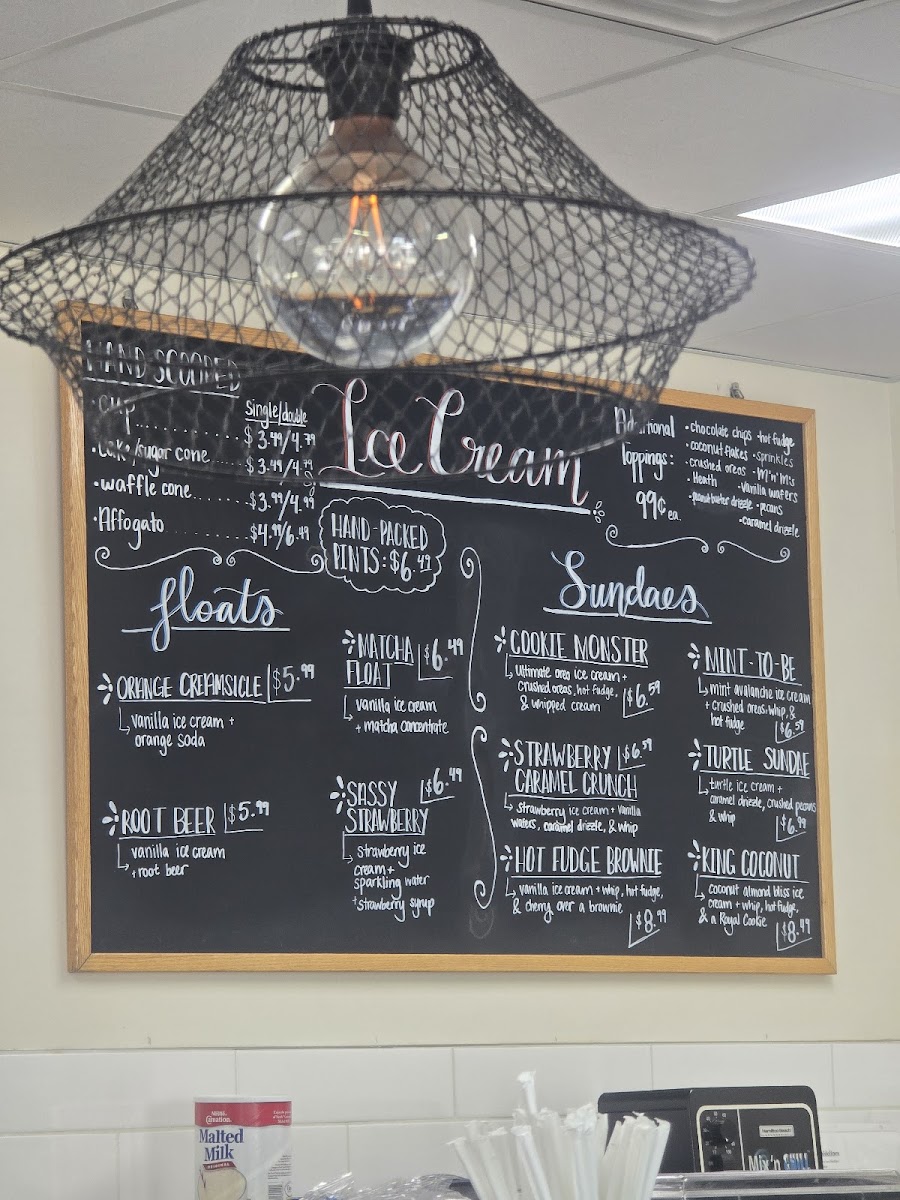 HAND SCOOPED
Single/double
·cup............ $3.99/4.79
·cake/sugar cone..... $3.49/4.79
·waffle cone....... $3.99/4.99
·Affogato ........ $4.99/6.49
Ice Cream
HAND-PACKED
PINTS: $6.49
Additional
Toppings:
99¢ ea.
·chocolate chips ·hot fudge
·coconut flakes ·sprinkles
·crushed oreos ·M'n'M's
·Heath ·vanilla wafers
·peanut butter drizzle ·pecans
·caramel drizzle
floats
ORANGE CREAMSICLE $5.99
vanilla ice cream +
orange soda
ROOT BEER $5.99
vanilla ice cream
+ root beer
MATCHA
FLOAT $6.49
vanilla ice cream
+ matcha concentrate
SASSY
STRAWBERRY $6.49
strawberry ice
cream +
sparkling water
+ strawberry syrup
Sundaes
COOKIE MONSTER
ultimate oreo ice cream +
crushed oreos, hot fudge,
& whipped cream $6.59
STRAWBERRY $6.59
CARAMEL CRUNCH
strawberry ice cream + vanilla
wafers, caramel drizzle, & whip
HOT FUDGE BROWNIE
vanilla ice cream + whip, hot fudge,
& cherry over a brownie
$8.99
MINT-TO-BE
mint avalanche ice cream
+ crushed oreos, whip, &
hot fudge $6.59
TURTLE SUNDAE
turtle ice cream +
caramel drizzle, crushed pecans
& whip $6.99
KING COCONUT
coconut almond bliss ice
cream + whip, hot fudge,
& a Royal Cookie $8.49
Nestlé
Carnation
Malted
Milk
Hamilton Beach
Mix'n Chill